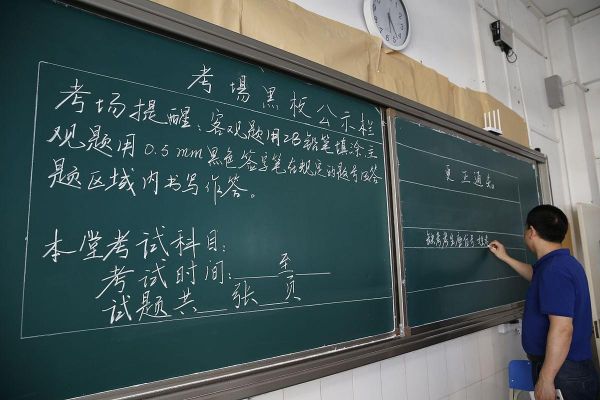 考場黑板公示栏
考场提醒：客观题用2B铅笔填涂主
观题用0.5mm黑色签字笔在规定的题答
题区域内书写作答。
本堂考试科目：
考试时间：___至___
试题共___张___页
更正通
缺考考生座位号